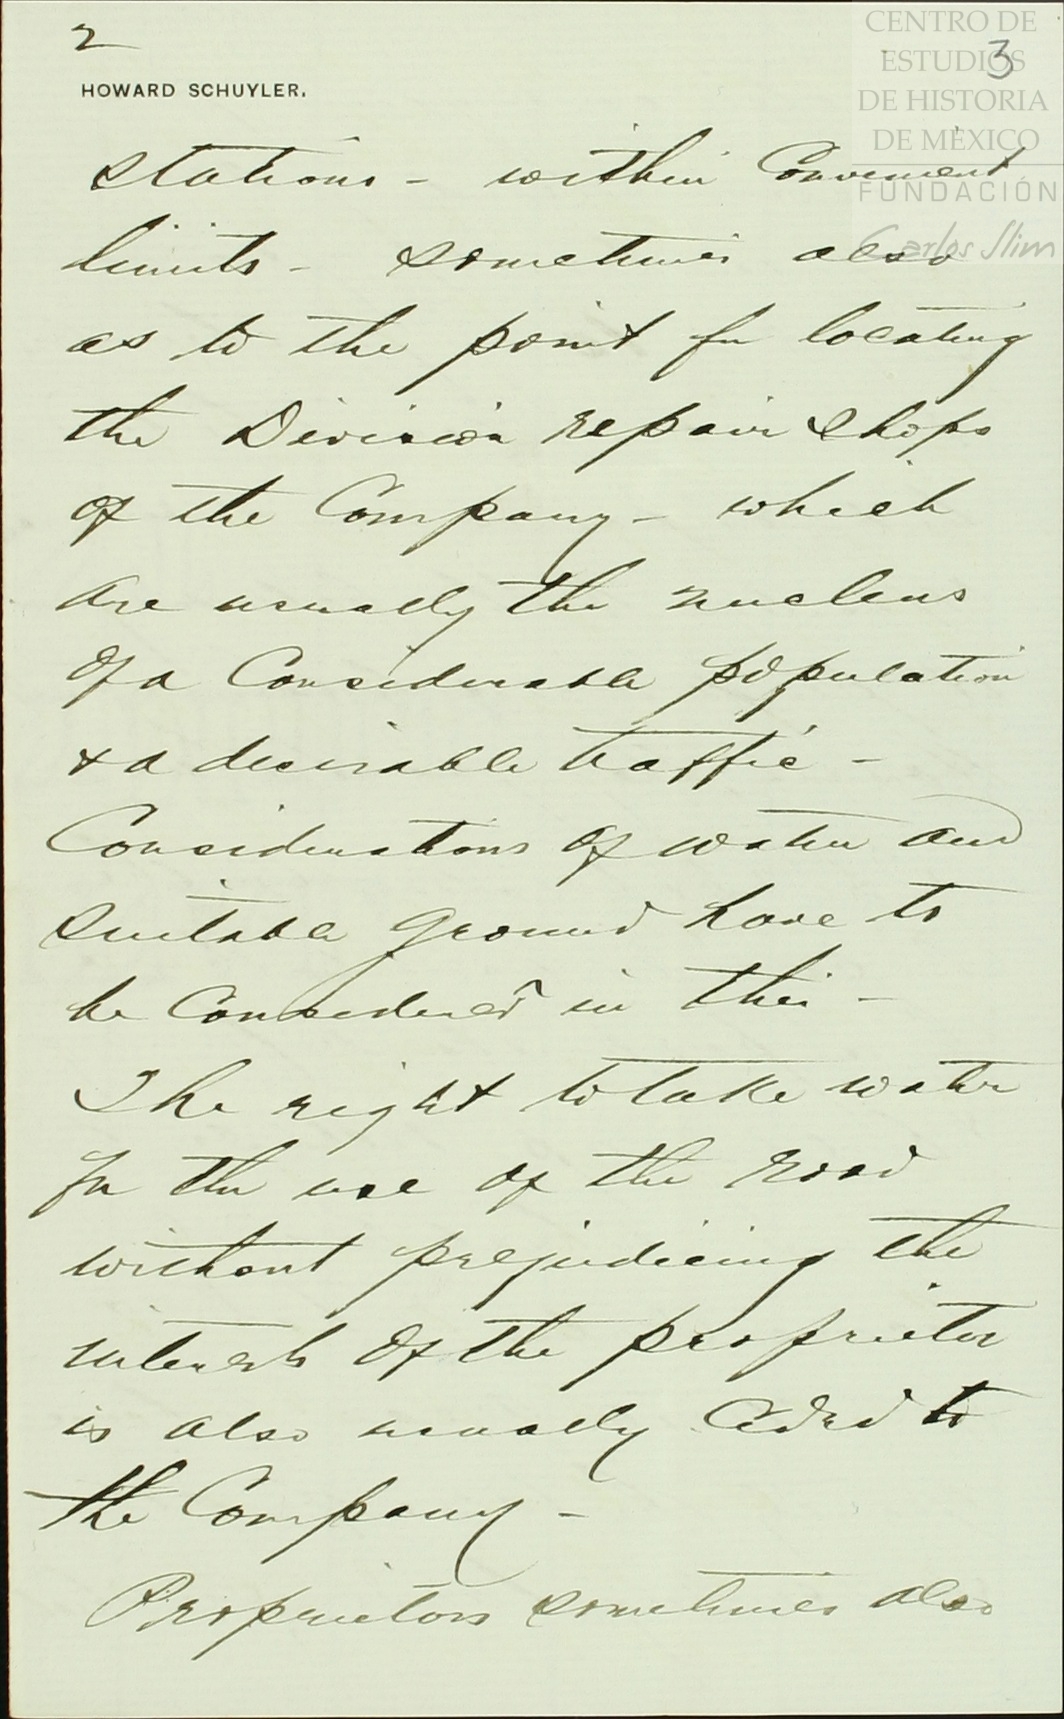 2
3
HOWARD SCHUYLER.
CENTRO DE
ESTUDIOS
DE HISTORIA
DE MÉXICO
FUNDACIÓN
Carlos Slim
stations – within Convenient
limits – sometimes also
as to the point for locating
the Division repair shops
of the Company – which
are usually the nucleus
of a Considerable population
& a desirable traffic –
Considerations of water and
suitable ground have to
be Considered in this –
The right to take water
for the use of the road
without prejudicing the
interests of the proprietor
is also usually Ceded to
the Company –
Proprietors sometimes also